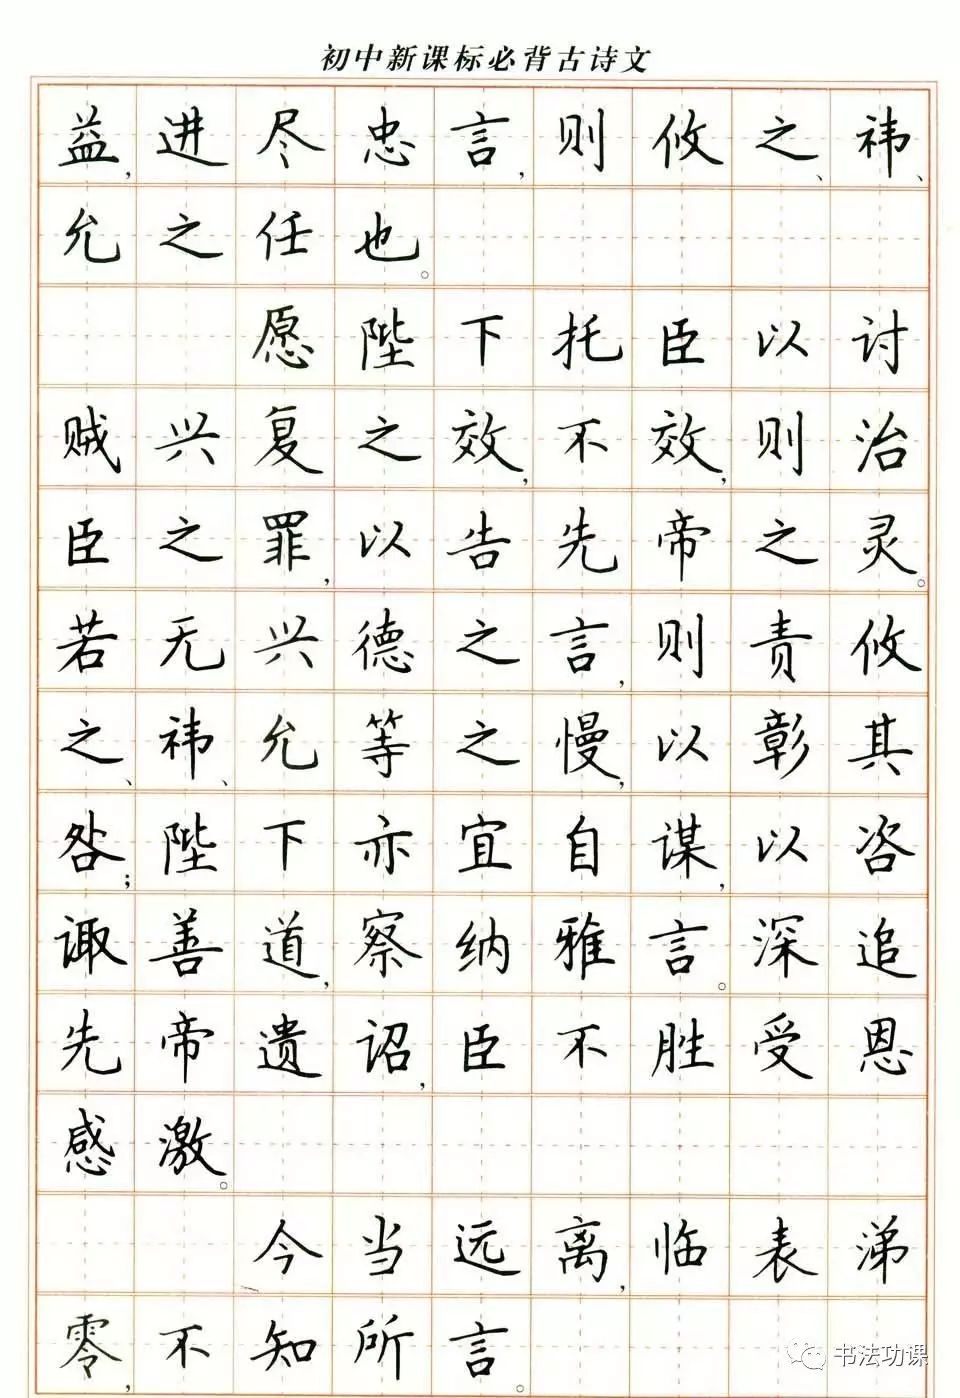 初中新课标必背古诗文
益,进尽忠言,则攸之、祎、
允之任也。
愿陛下托臣以讨
贼兴复之效,不效,则治
臣之罪,以告先帝之灵。
若无兴德之言,则责攸
之、祎、允等之慢,以彰其
咎;陛下亦宜自谋,以咨
诹善道,察纳雅言。深追
先帝遗诏,臣不胜受恩
感激。
今当远离,临表涕
零,不知所言。
书法功课